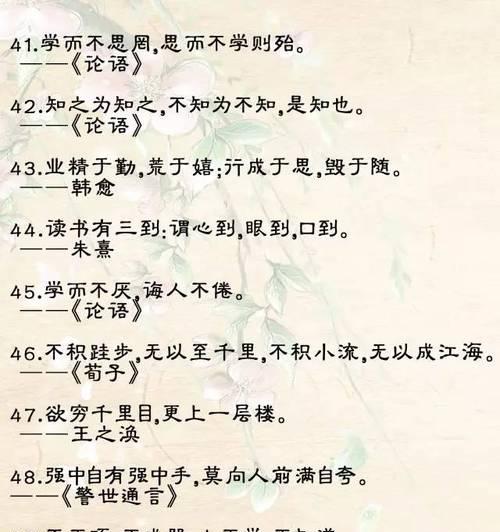 41.学而不思罔,思而不学则殆。
——《论语》
42.知之为知之,不知为不知,是知也。
——《论语》
43.业精于勤,荒于嬉;行成于思,毁于随。
——韩愈
44.读书有三到:谓心到,眼到,口到。
——朱熹
45.学而不厌,诲人不倦。
——《论语》
46.不积跬步,无以至千里,不积小流,无以成江海。
——《荀子》
47.欲穷千里目,更上一层楼。
——王之涣
48.强中自有强中手,莫向人前满自夸。
——《警世通言》